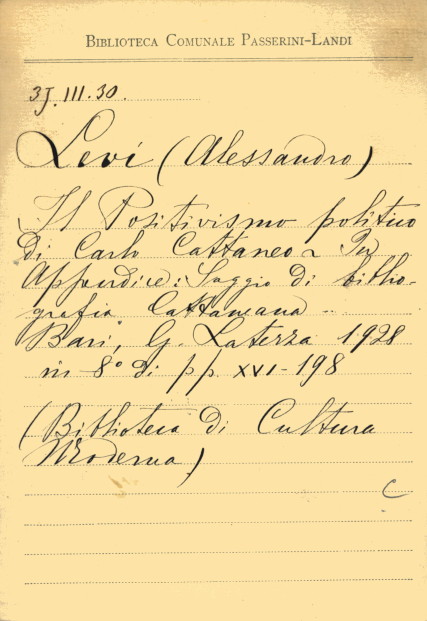 BIBLIOTECA COMUNALE PASSERINI-LANDI
3J.III.30.
Levi (Alessandro)
Il Positivismo politico
di Carlo Cattaneo - In
Appendice: Saggio di biblio-
grafia Cattaneana -
Bari, G. Laterza 1928
in 8° di pp. XVI-198
(Biblioteca di Cultura
Moderna)
C